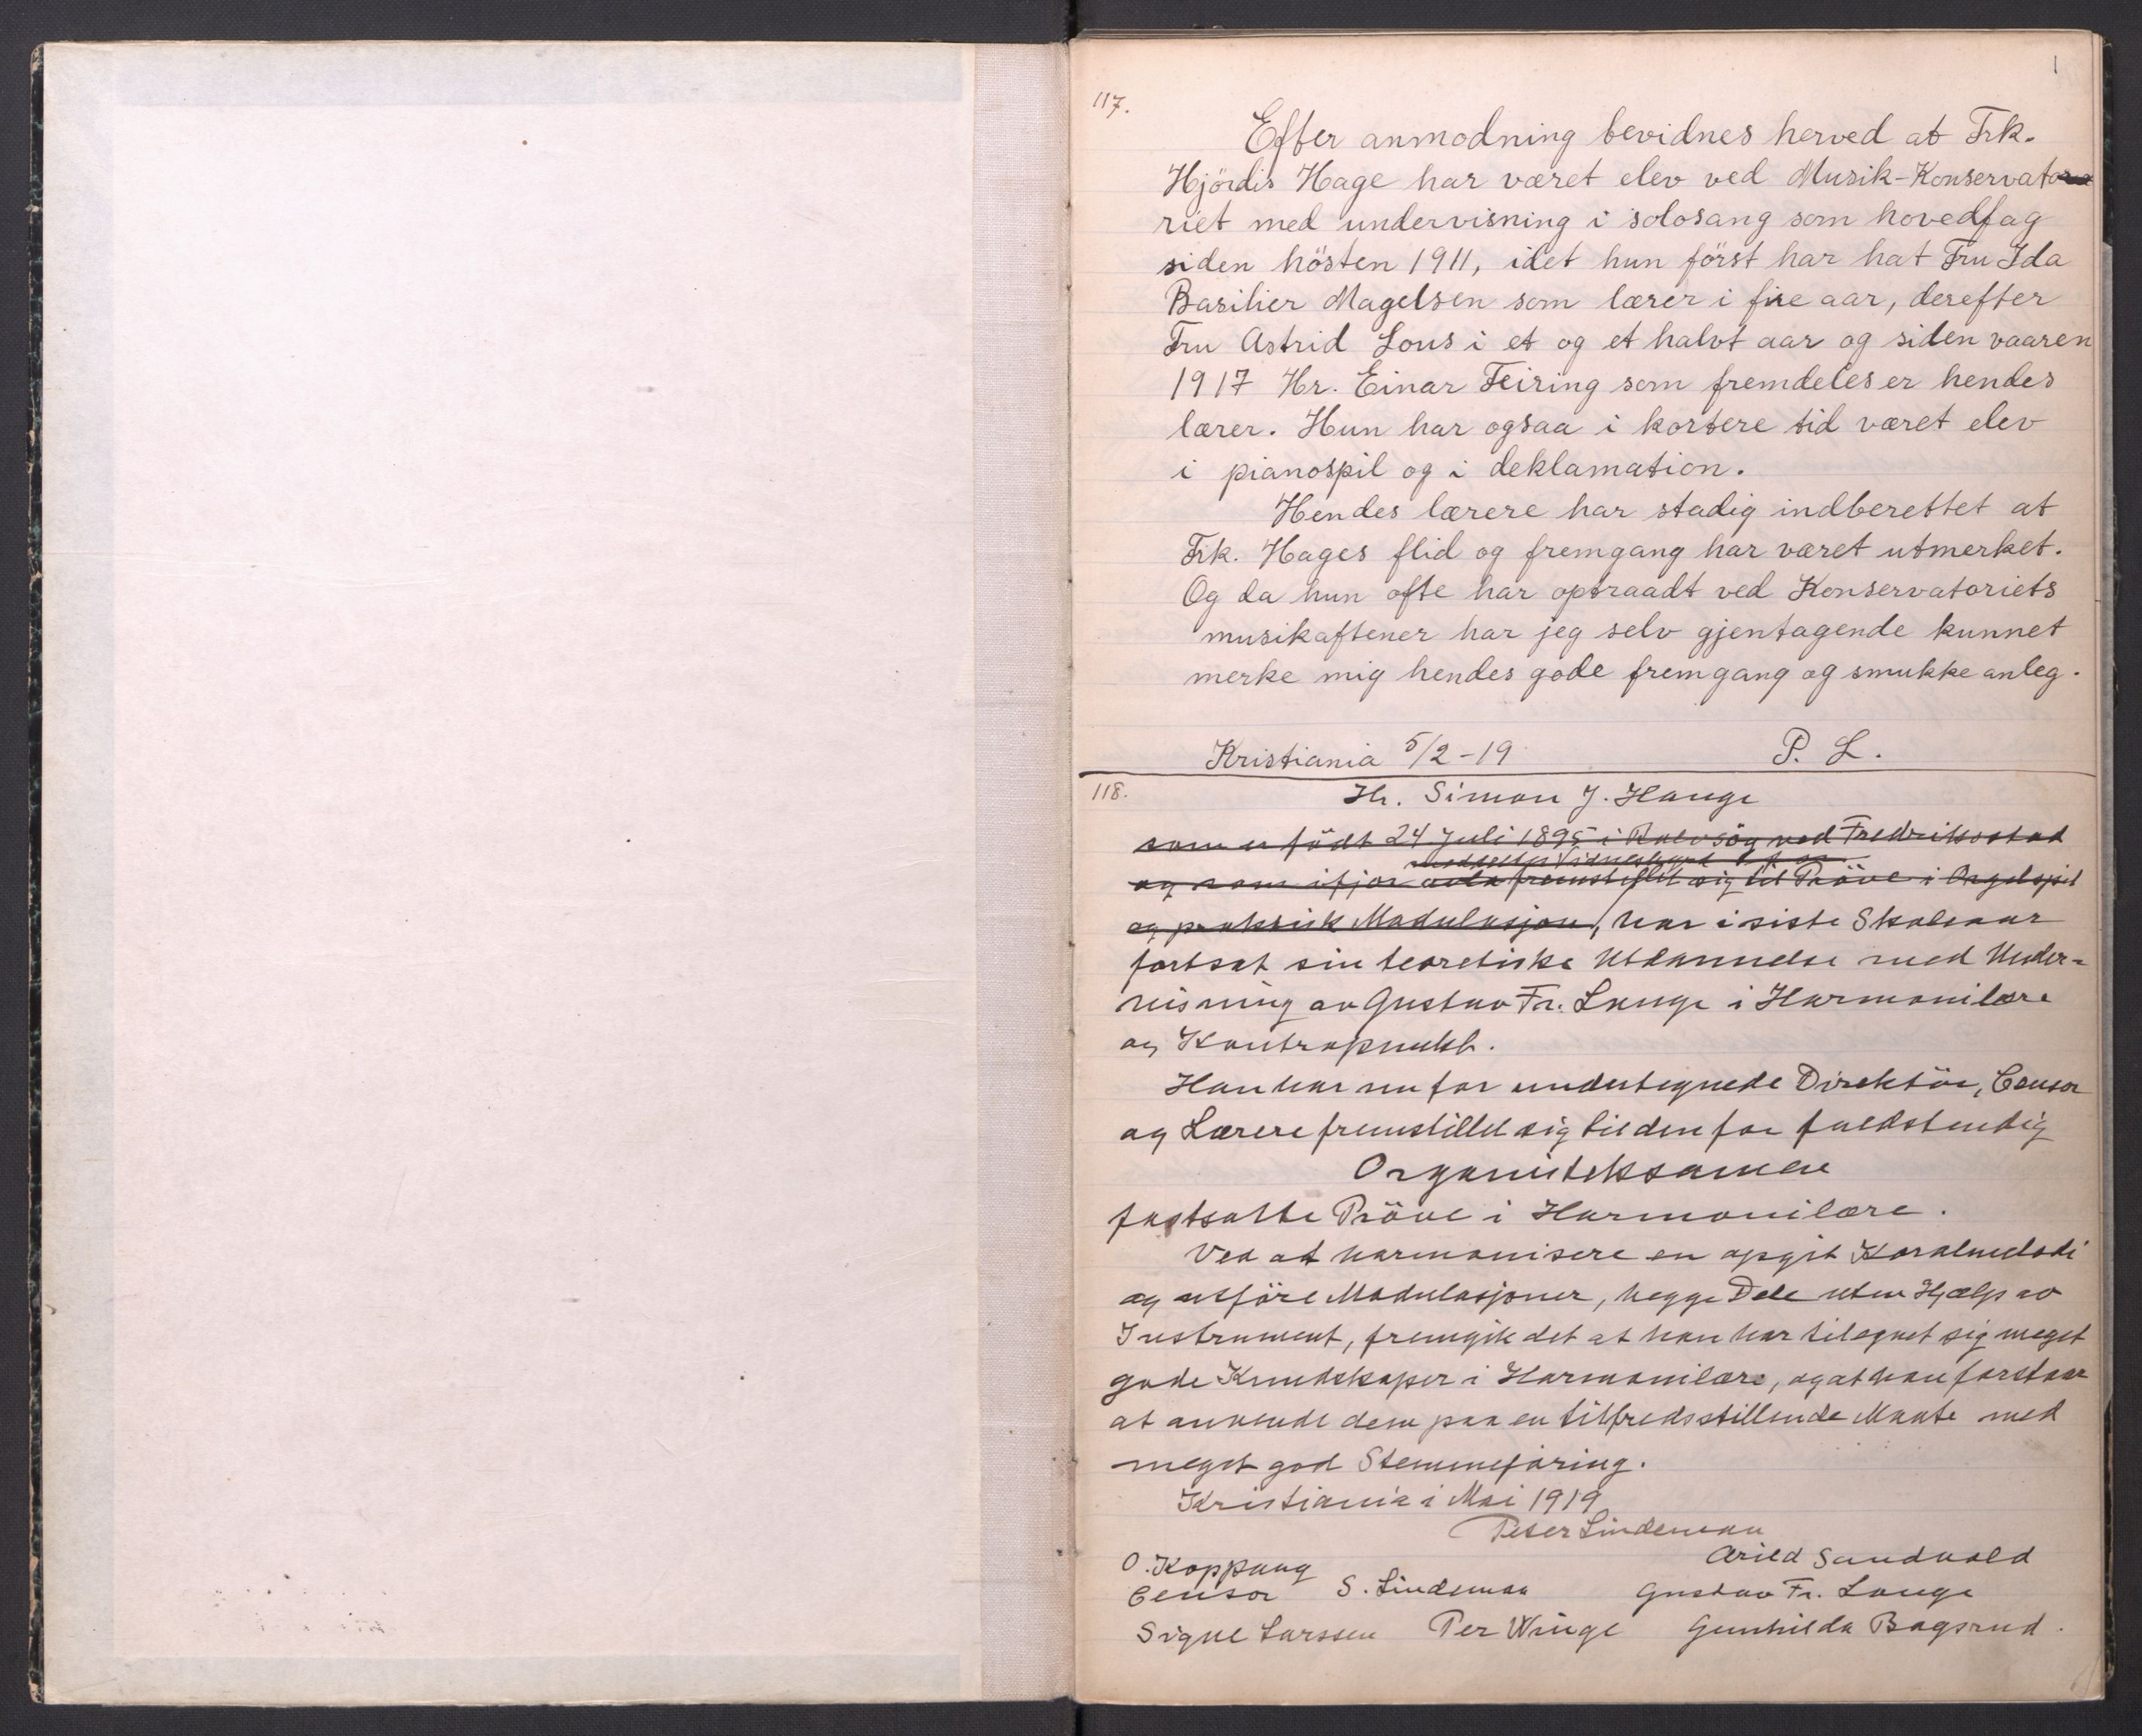 1
117.
Efter anmodning bevidnes herved at Frk.
Hjördis Hage har været elev ved Musik-Konservato
riet med undervisning i solosang som hovedfag
siden hösten 1911, idet hun först har hat Fru Ida
Basilier Magelsen som lærer i fire aar, derefter
Fru Astrid Lous i et og et halvt aar og siden vaaren
1917 Hr. Einar Feiring som fremdeles er hendes
lærer. Hun har ogsaa i kortere tid været elev
i pianospil og i deklamation.
Hendes lærere har stadig indberettet at
Frk. Hages flid og fremgang har været utmerket.
Og da hun ofte har optraadt ved Konservatoriets
musikaftener har jeg selv gjentagende kunnet
merke mig hendes gode fremgang og smukke anleg.
Kristiania 5/2-19 P. L.
118.
Hr. Simon J. Hauge
som er födt 24 Juli 1895 i ved Fredriksstad
Vidnesbyrd
og som ifjor fremstillet sig til Pröve i Orgelspil
og praktisk Modulasjon, har i siste Skoleaar
fortsat sin teoretiske Utdannelse med Under-
visning av Gustav Fr. Lange i Harmonilære
og Kontrapunkt.
Han har nu for undertegnede Direktör, Censor
og Lærere fremstillet sig til den for fuldstendig
Organisteksamen
fastsatte Pröve i Harmonilære.
Ved at harmonisere en opgit Koralmelodi
og utföre Modulasjoner, begge Dele uten Hjælp av
Instrument, fremgik det at han har tilegnet sig meget
gode Kundskaper i Harmonilære, og at han forstaar
at anvende dem paa en tilfredsstillende Maate med
meget god Stemmeföring.
Kristiania i Mai 1919
Peter Lindeman
O. Koppang Arild Sandvold
Censor S. Lindeman Gustav Fr. Lange
Signe Larssen Per Winge Gunhilda Bagsrud.